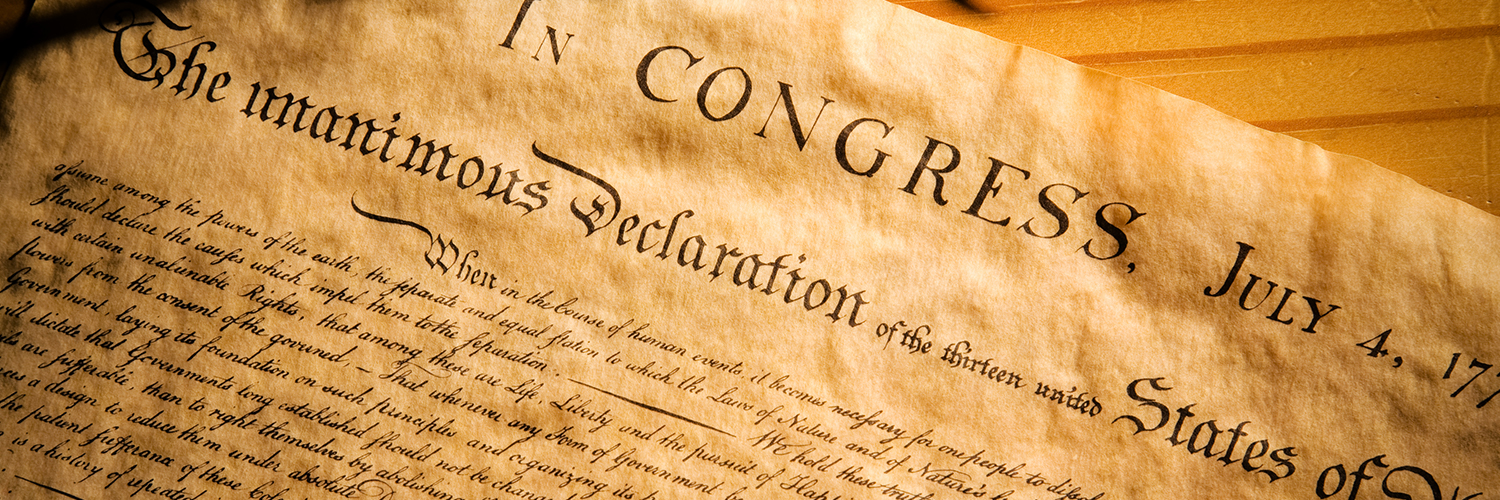 IN CONGRESS, JULY 4, 177
The unanimous Declaration of the thirteen united States of
When in the Course of human events, it becomes necessary for one people to dissol
assume among the powers of the earth, the separate and equal station to which the Laws of Nature and of Nature's
should declare the causes which impel them to the separation. — We hold these truth
with certain unalienable Rights, that among these are Life, Liberty and the pursuit of Hap
powers from the consent of the governed, — That whenever any Form of Government
Government, laying its foundation on such principles and organizing its
will dictate that Governments long established should not be chang
are sufferable, than to right themselves by abolishing
a design to reduce them under absolute D
the patient sufferance of these Col
is a history of repeated